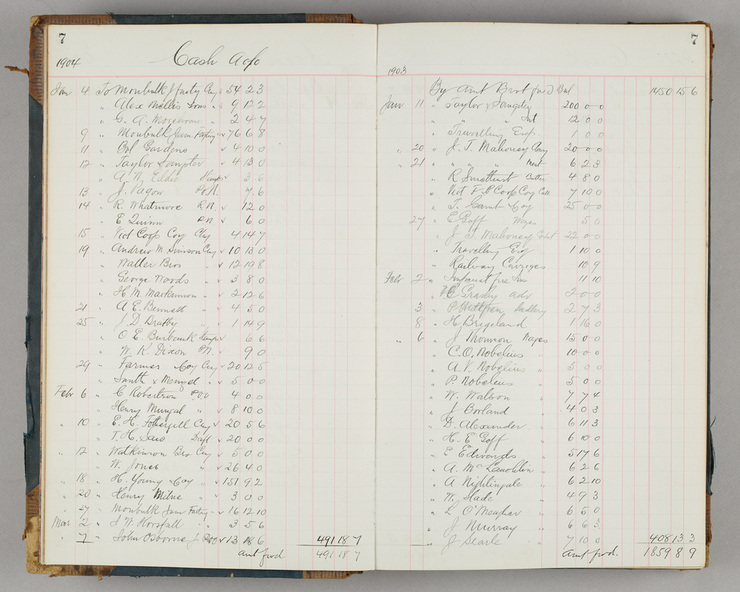 7
1904 Cash A/c
Jan 4 To Monbulk J facty Cq 54 2 3
" Alex Mollis Sons " 9 12 2
" G. A. " 2 4 7
9 " Monbulk Jam Factry 76 6 8
11 " Gardens 4 10 0
12 " Taylor Sangster 4 13 0
" A. N. Eddie Stamps 3 0
13 " J. Pagon P.N. 7 6
14 " R. Whatmore P.N. 12 0
" E Quinn P.N. 6 0
15 " Vict Coop Coy Chq 4 14 7
19 " Andrew M. Cq 10 13 0
" Waller Bros " 12 19 8
" George Woods " 3 8 0
" H. M. Mackinnon " 2 12 6
21 " A E Bennett " 4 5 0
25 " J D 1 14 9
" O E Burbank Stamps 6 6
" W. R. Dixon P.N. 9 0
29 " Farmer Coy Cq 20 12 5
" Smith & " 5 0 0
Feb 6 " C Robertson P.O.O 4 0 0
" Henry " 8 10 0
" 10 " E. H. Cq 20 5 6
" T. H. Dft 20 0 0
" 12 " Watkinson Bro Cq 5 0 0
" W. Jones " 26 4 0
" 18 " H. Young Coy 151 9 2
" 20 " Henry Milne " 3 0 0
" 27 " Monbulk Jam Factry " 16 12 10
Mar 2 " J. W. Horsfall " 3 5 6
" 7 " John Osborne P.O.O 13 18 6 491 18 7
amt fwd 491 18 7
7
1903
By Amt Brot fwd 1450 15 6
Jan 11 " Taylor & Sangster 200 0 0
" " Int 12 0 0
" Travelling Exp. 1 0 0
" 20 " J. T. Mahoney 20 0 0
" 21 " " " Meat 6 2 3
" R Smethurst 4 8 0
" Vict Coop Coy 7 10 0
" T. Coy 25 0 0
" 27 " E Goff Wages 5 0
" J T Mahoney 22 0 0
" Travelling Exp 1 10 0
" Railway 10 9
Feb 2 " fire Ins 11 10
" E Grady adv 2 0 0
3 " 2 7 3
" 8 " H. 1 16 0
" 6 " J Monvon Wages 15 0 0
" C. O. Nobelius 10 0 0
" A. V. Nobelius " 5 0 0
" P Nobelius " 5 0 0
" W. Watson " 7 7 4
" J Borland " 4 0 3
" D. Alexander " 6 11 3
" H. E Goff " 6 10 0
" E Edwards " 5 17 6
" A. McLauchlin " 6 2 6
" A Nightingale " 6 2 10
" W. Slade " 4 9 3
" L O'Meagher " 6 5 0
" J Murray " 6 6 3
" J Searle " 7 10 0 408 13 3
amt fwd. 1859 8 9